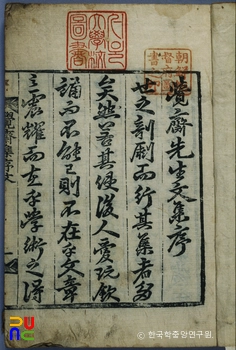 覺齋先生文集序
世之剞劂而行其集者多
矣然若其使後人愛玩欽
誦而不能已則不在乎文章
之震耀而在乎學術之得
© 한국학중앙연구원